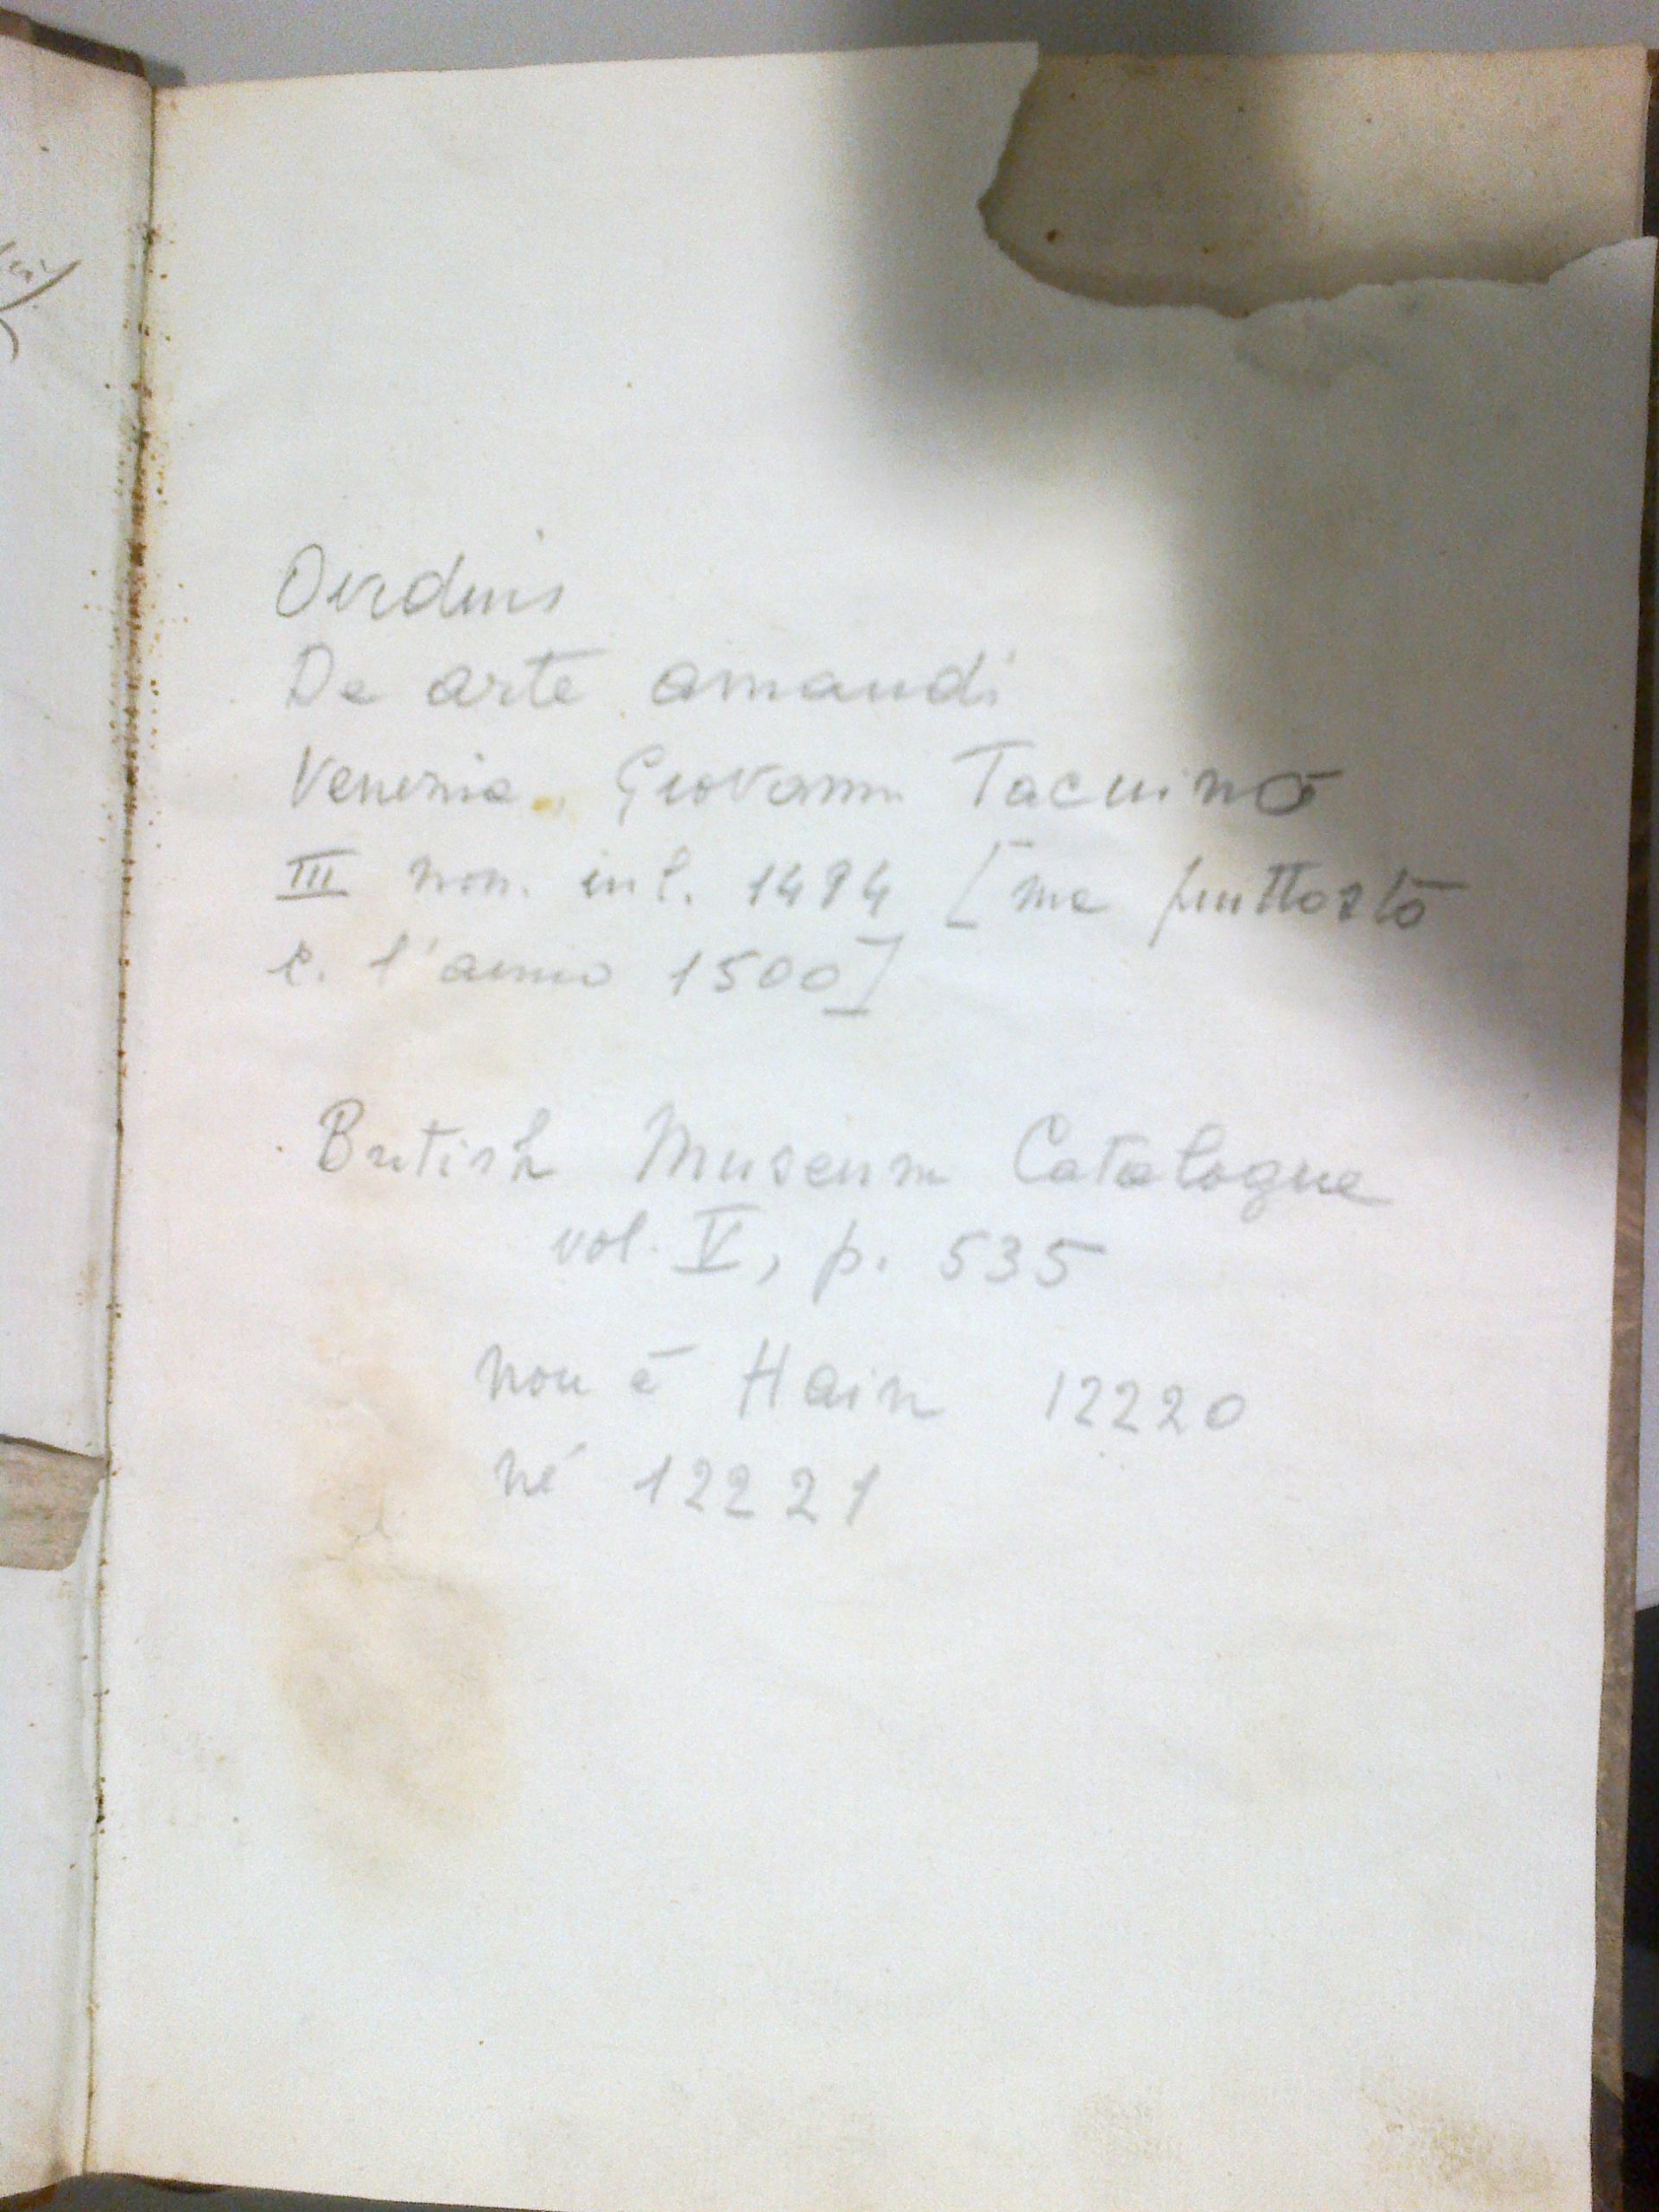 Ovidius
De arte amandi
Venezia, Giovanni Tacuino
III non. iul. 1494 [ma piuttosto
c. l'anno 1500]
British Museum Catalogue
vol. V, p. 535
non è Hain 12220
né 12221